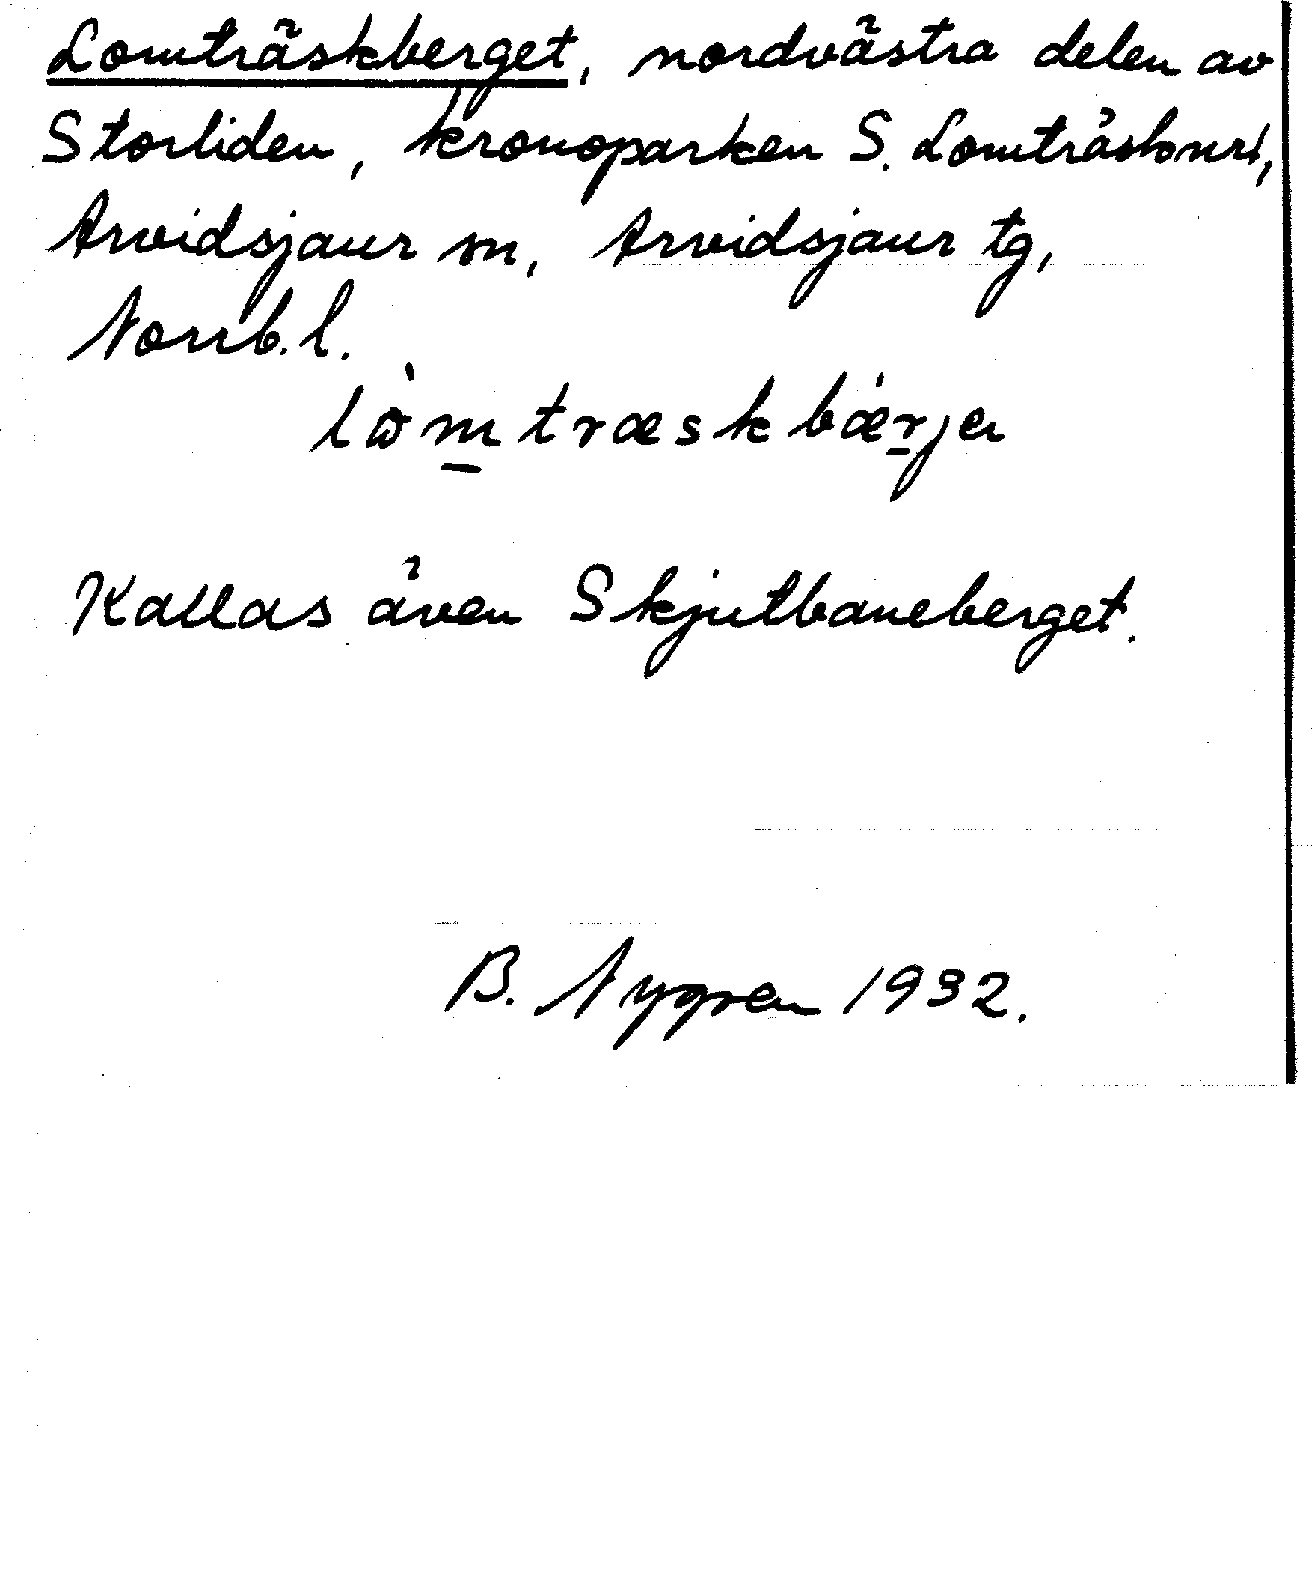 Lomträskberget, nordvästra delen av
Storliden, kronoparken S. Lomträsknrt,
Arvidsjaur sn, Arvidsjaur tg,
Norrb. l.
lòmtræskbærja
Kallas även Skjutbaneberget.
B. Nygren 1932.